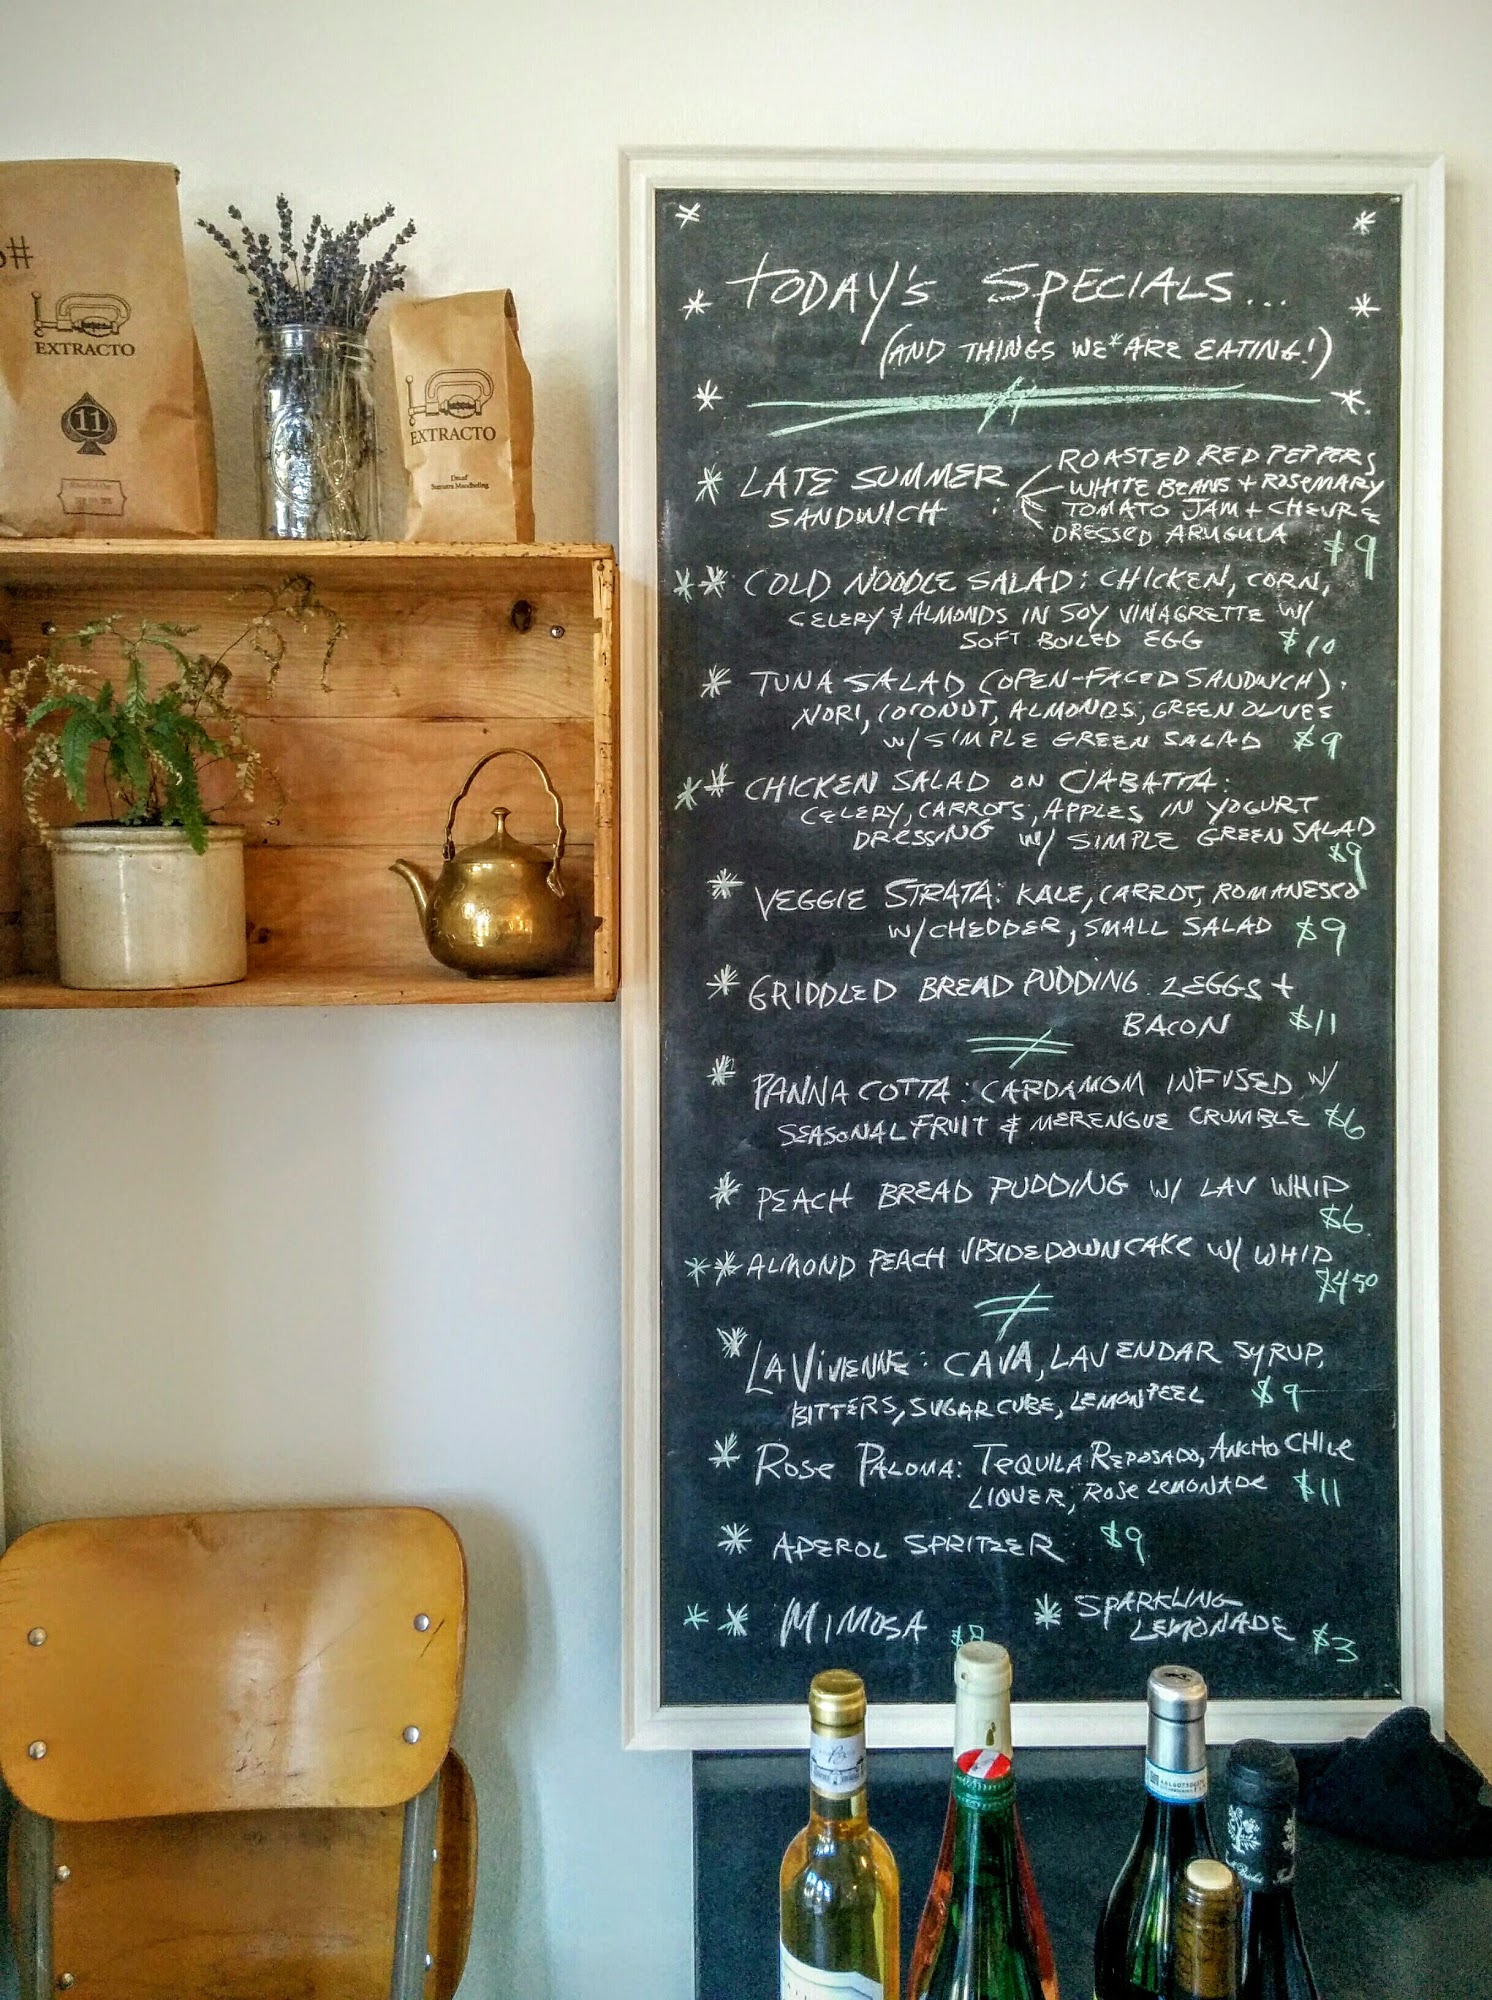 EXTRACTO
11
EXTRACTO
Decaf
Sumatra Mandheling
TODAY'S SPECIALS...
(AND THINGS WE* ARE EATING!)
* LATE SUMMER SANDWICH :
ROASTED RED PEPPERS
WHITE BEANS + ROSEMARY
TOMATO JAM + CHEVRE
DRESSED ARUGULA
$9
** COLD NOODLE SALAD: CHICKEN, CORN,
CELERY & ALMONDS IN SOY VINAGRETTE W/
SOFT BOILED EGG $10
* TUNA SALAD (OPEN-FACED SANDWICH).
NORI, COCONUT, ALMONDS, GREEN OLIVES
W/ SIMPLE GREEN SALAD $9
** CHICKEN SALAD ON CIABATTA:
CELERY, CARROTS, APPLES IN YOGURT
DRESSING W/ SIMPLE GREEN SALAD
$9
* VEGGIE STRATA: KALE, CARROT, ROMANESCO
W/ CHEDDER, SMALL SALAD $9
* GRIDDLED BREAD PUDDING 2 EGGS +
BACON $11
* PANNA COTTA: CARDAMOM INFUSED W/
SEASONAL FRUIT & MERENGUE CRUMBLE $6
* PEACH BREAD PUDDING W/ LAV WHIP
$6
** ALMOND PEACH UPSIDEDOWN CAKE W/ WHIP
$4.50
* LA VIVIENNE: CAVA, LAVENDAR SYRUP,
BITTERS, SUGAR CUBE, LEMON PEEL $9
* ROSE PALOMA: TEQUILA REPOSADO, ANCHO CHILE
LIQUER, ROSE LEMONADE $11
* APEROL SPRITZER $9
** MIMOSA $8
* SPARKLING
LEMONADE $3